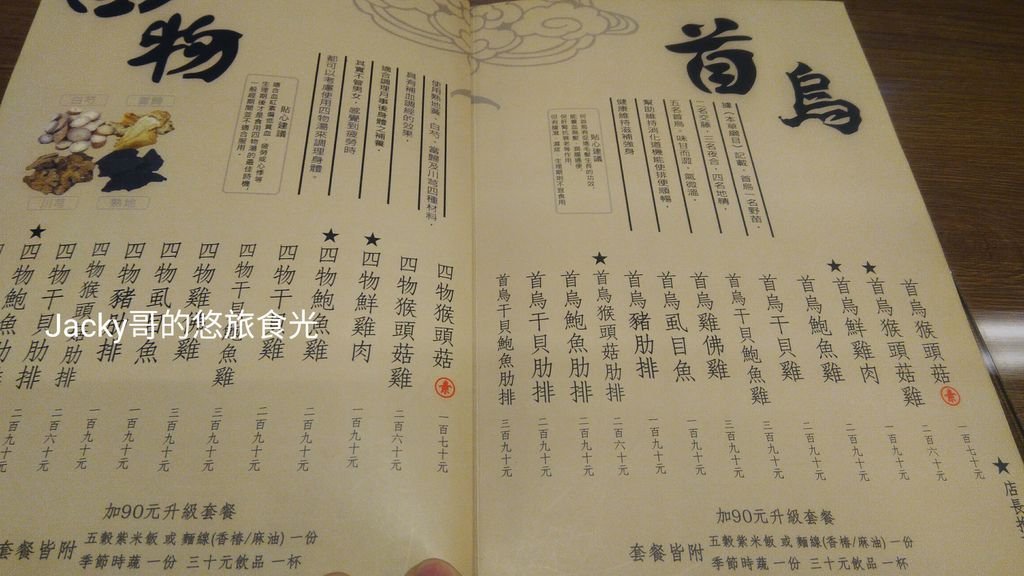 首烏
據《本草綱目》記載，首烏一名野苗，
二名交藤，三名夜合，四名地精，
五名首烏。味甘而澀，氣微溫，
幫助維持消化道機能使排便順暢，
健康維持滋補強身。
貼心建議
首烏猴頭菇 素 一百七十元
首烏猴頭菇雞 二百六十元
★首烏鮮雞肉 一百九十元
★首烏鮑魚雞 二百九十元
首烏干貝雞 二百九十元
首烏干貝鮑魚雞 三百九十元
首烏雞佛雞 三百九十元
首烏虱目魚 一百九十元
首烏豬肋排 一百九十元
★首烏猴頭菇肋排 二百六十元
首烏鮑魚肋排 二百九十元
首烏干貝肋排 二百九十元
首烏干貝鮑魚肋排 三百九十元
★店長推
加90元升級套餐
套餐皆附
五穀紫米飯 或 麵線(香椿/麻油) 一份
季節時蔬 一份 三十元飲品 一杯
四物
使用熟地黃、白芍、當歸及川芎四種材料，
具有補血調經的效果，
適合調理月事後身體之補養，
其實不管男女，感覺到疲勞時，
都可以考慮使用四物湯來調理身體。
貼心建議
適合血紅素偏低貧血、疲勞或心悸等
生理期後才是食用四物湯的最佳時機，
一般經期間並不適合服用。
白芍
當歸
川芎
熟地
四物猴頭菇 素 一百七十元
四物猴頭菇雞 二百六十元
★四物鮮雞肉 一百九十元
★四物鮑魚雞 二百九十元
四物干貝雞 二百九十元
四物干貝鮑魚雞 三百九十元
四物雞佛雞 三百九十元
四物虱目魚 一百九十元
四物豬肋排 一百九十元
四物猴頭菇肋排 二百六十元
四物干貝肋排
★四物鮑魚肋排
加90元升級套餐
套餐皆附
五穀紫米飯 或 麵線(香椿/麻油) 一份
季節時蔬 一份 三十元飲品 一杯
Jacky哥的悠旅食光